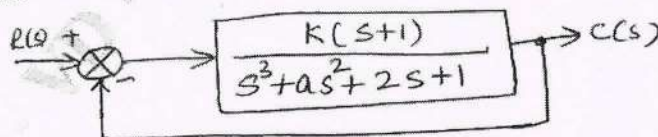 R(s) +
-
K(s+1)
s³+as²+2s+1
C(s)